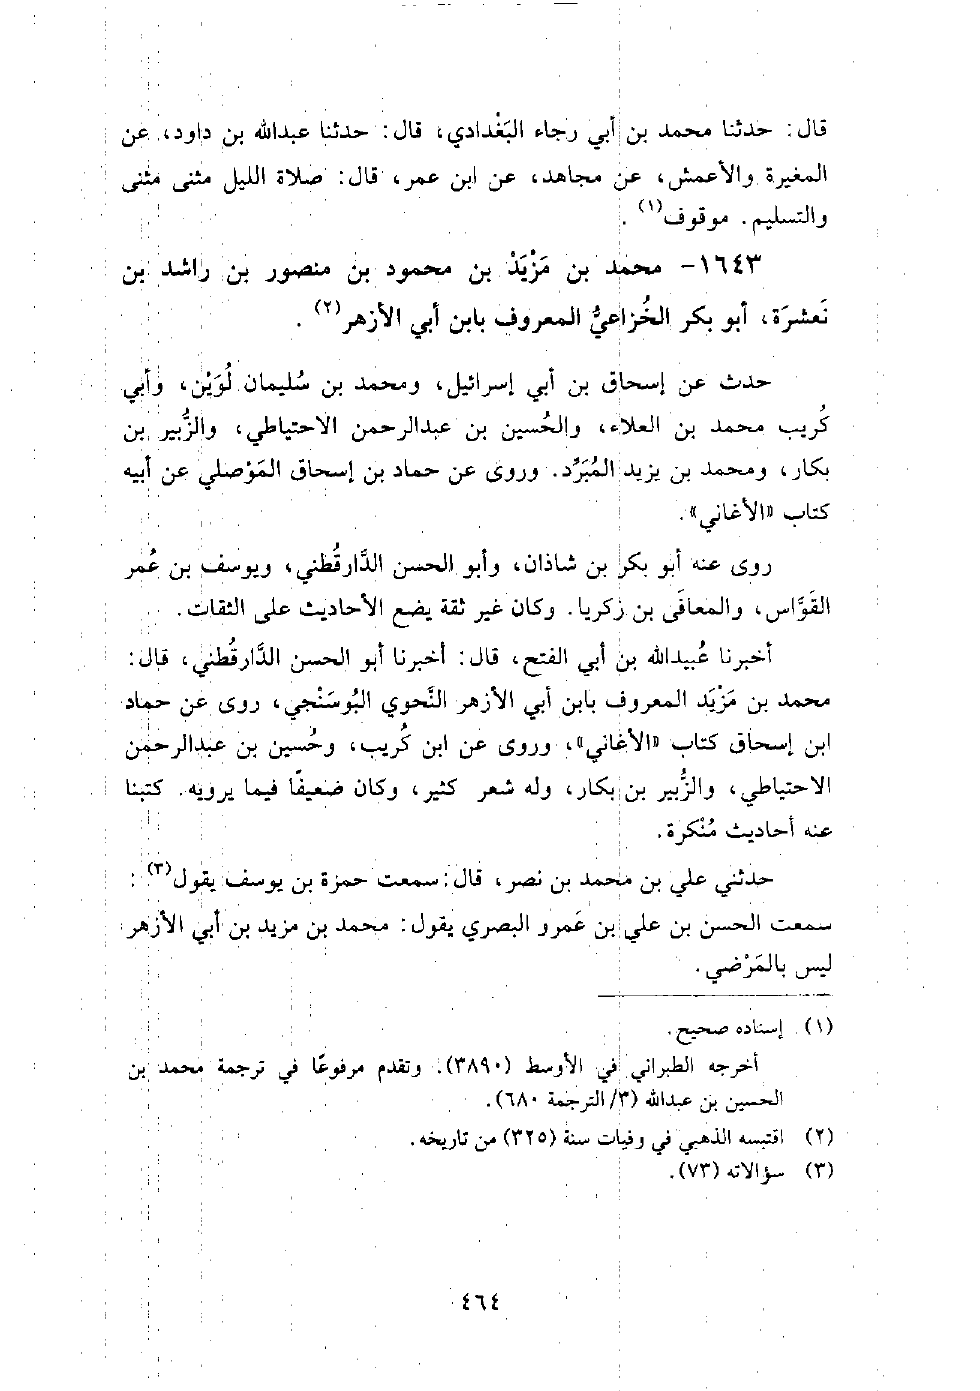 قال: حدثنا محمد بن أبي رجاء البَغْدادي، قال: حدثنا عبدالله بن داود، عن
المغيرة والأعمش، عن مجاهد، عن ابن عمر، قال: صلاة الليل مثنى مثنى
والتسليم. موقوف(١).
١٦٤٣- محمد بن مَزْيَدْ بن محمود بن منصور بن راشد بن
نَعشرَة، أبو بكر الخُزاعيُّ المعروف بابن أبي الأزهر(٢).
حدث عن إسحاق بن أبي إسرائيل، ومحمد بن سُليمان لُوَيْن، وأبي
كُريب محمد بن العلاء، والحُسين بن عبدالرحمن الاحتياطي، والزُّبير بن
بكار، ومحمد بن يزيد المُبَرِّد. وروى عن حماد بن إسحاق المَوْصلي عن أبيه
كتاب «الأغاني».
روى عنه أبو بكر بن شاذان، وأبو الحسن الدَّارقُطني، ويوسف بن عُمر
القَوَّاس، والمعافَى بن زكريا. وكان غير ثقة يضع الأحاديث على الثقات.
أخبرنا عُبيدالله بن أبي الفتح، قال: أخبرنا أبو الحسن الدَّارقُطني، قال:
محمد بن مَزْيَد المعروف بابن أبي الأزهر النَّحوي البُوسَنْجي، روى عن حماد
ابن إسحاق كتاب «الأغاني»، وروى عن ابن كُريب، وحُسين بن عبدالرحمن
الاحتياطي، والزُّبير بن بكار، وله شعر كثير، وكان ضعيفًا فيما يرويه. كتبنا
عنه أحاديث مُنْكرة.
حدثني علي بن محمد بن نصر، قال: سمعت حمزة بن يوسف يقول(٣):
سمعت الحسن بن علي بن عَمرو البصري يقول: محمد بن مزيد بن أبي الأزهر
ليس بالمَرْضي.
(١) إسناده صحيح.
أخرجه الطبراني في الأوسط (٣٨٩٠). وتقدم مرفوعًا في ترجمة محمد بن
الحسين بن عبدالله (٣/ الترجمة ٦٨٠).
(٢) اقتبسه الذهبي في وفيات سنة (٣٢٥) من تاريخه.
(٣) سؤالاته (٧٣).
٤٦٤